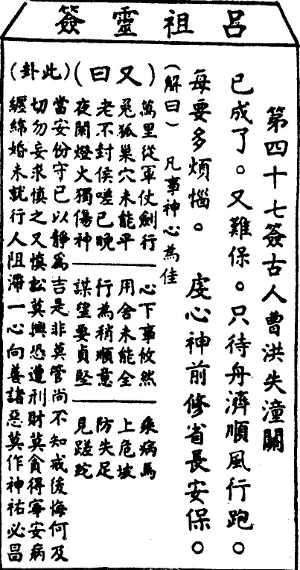 呂祖靈簽
第四十七簽古人曹洪失潼關
已成了。又難保。只待舟濟順風行跑。
每要多煩惱。虔心神前修省長安保。
(解曰) 凡事神心為佳
(又曰)
萬里從軍仗劍行
兎狐巢穴未能平
老不封侯嗟已晚
夜闌燈火獨傷神
心下事攸然
用舍未能全
行為稍順意
謀望要貞堅
乘病馬
上危坡
防失足
見蹉跎
(此卦)
當安份守已以靜為吉是非莫管尚不知戒後悔何及
切勿妄求慎之又慎松莫興恐遭刑財莫貪得寧安病
纏綿婚未就行人阻滯一心向善諸惡莫作神祐必昌